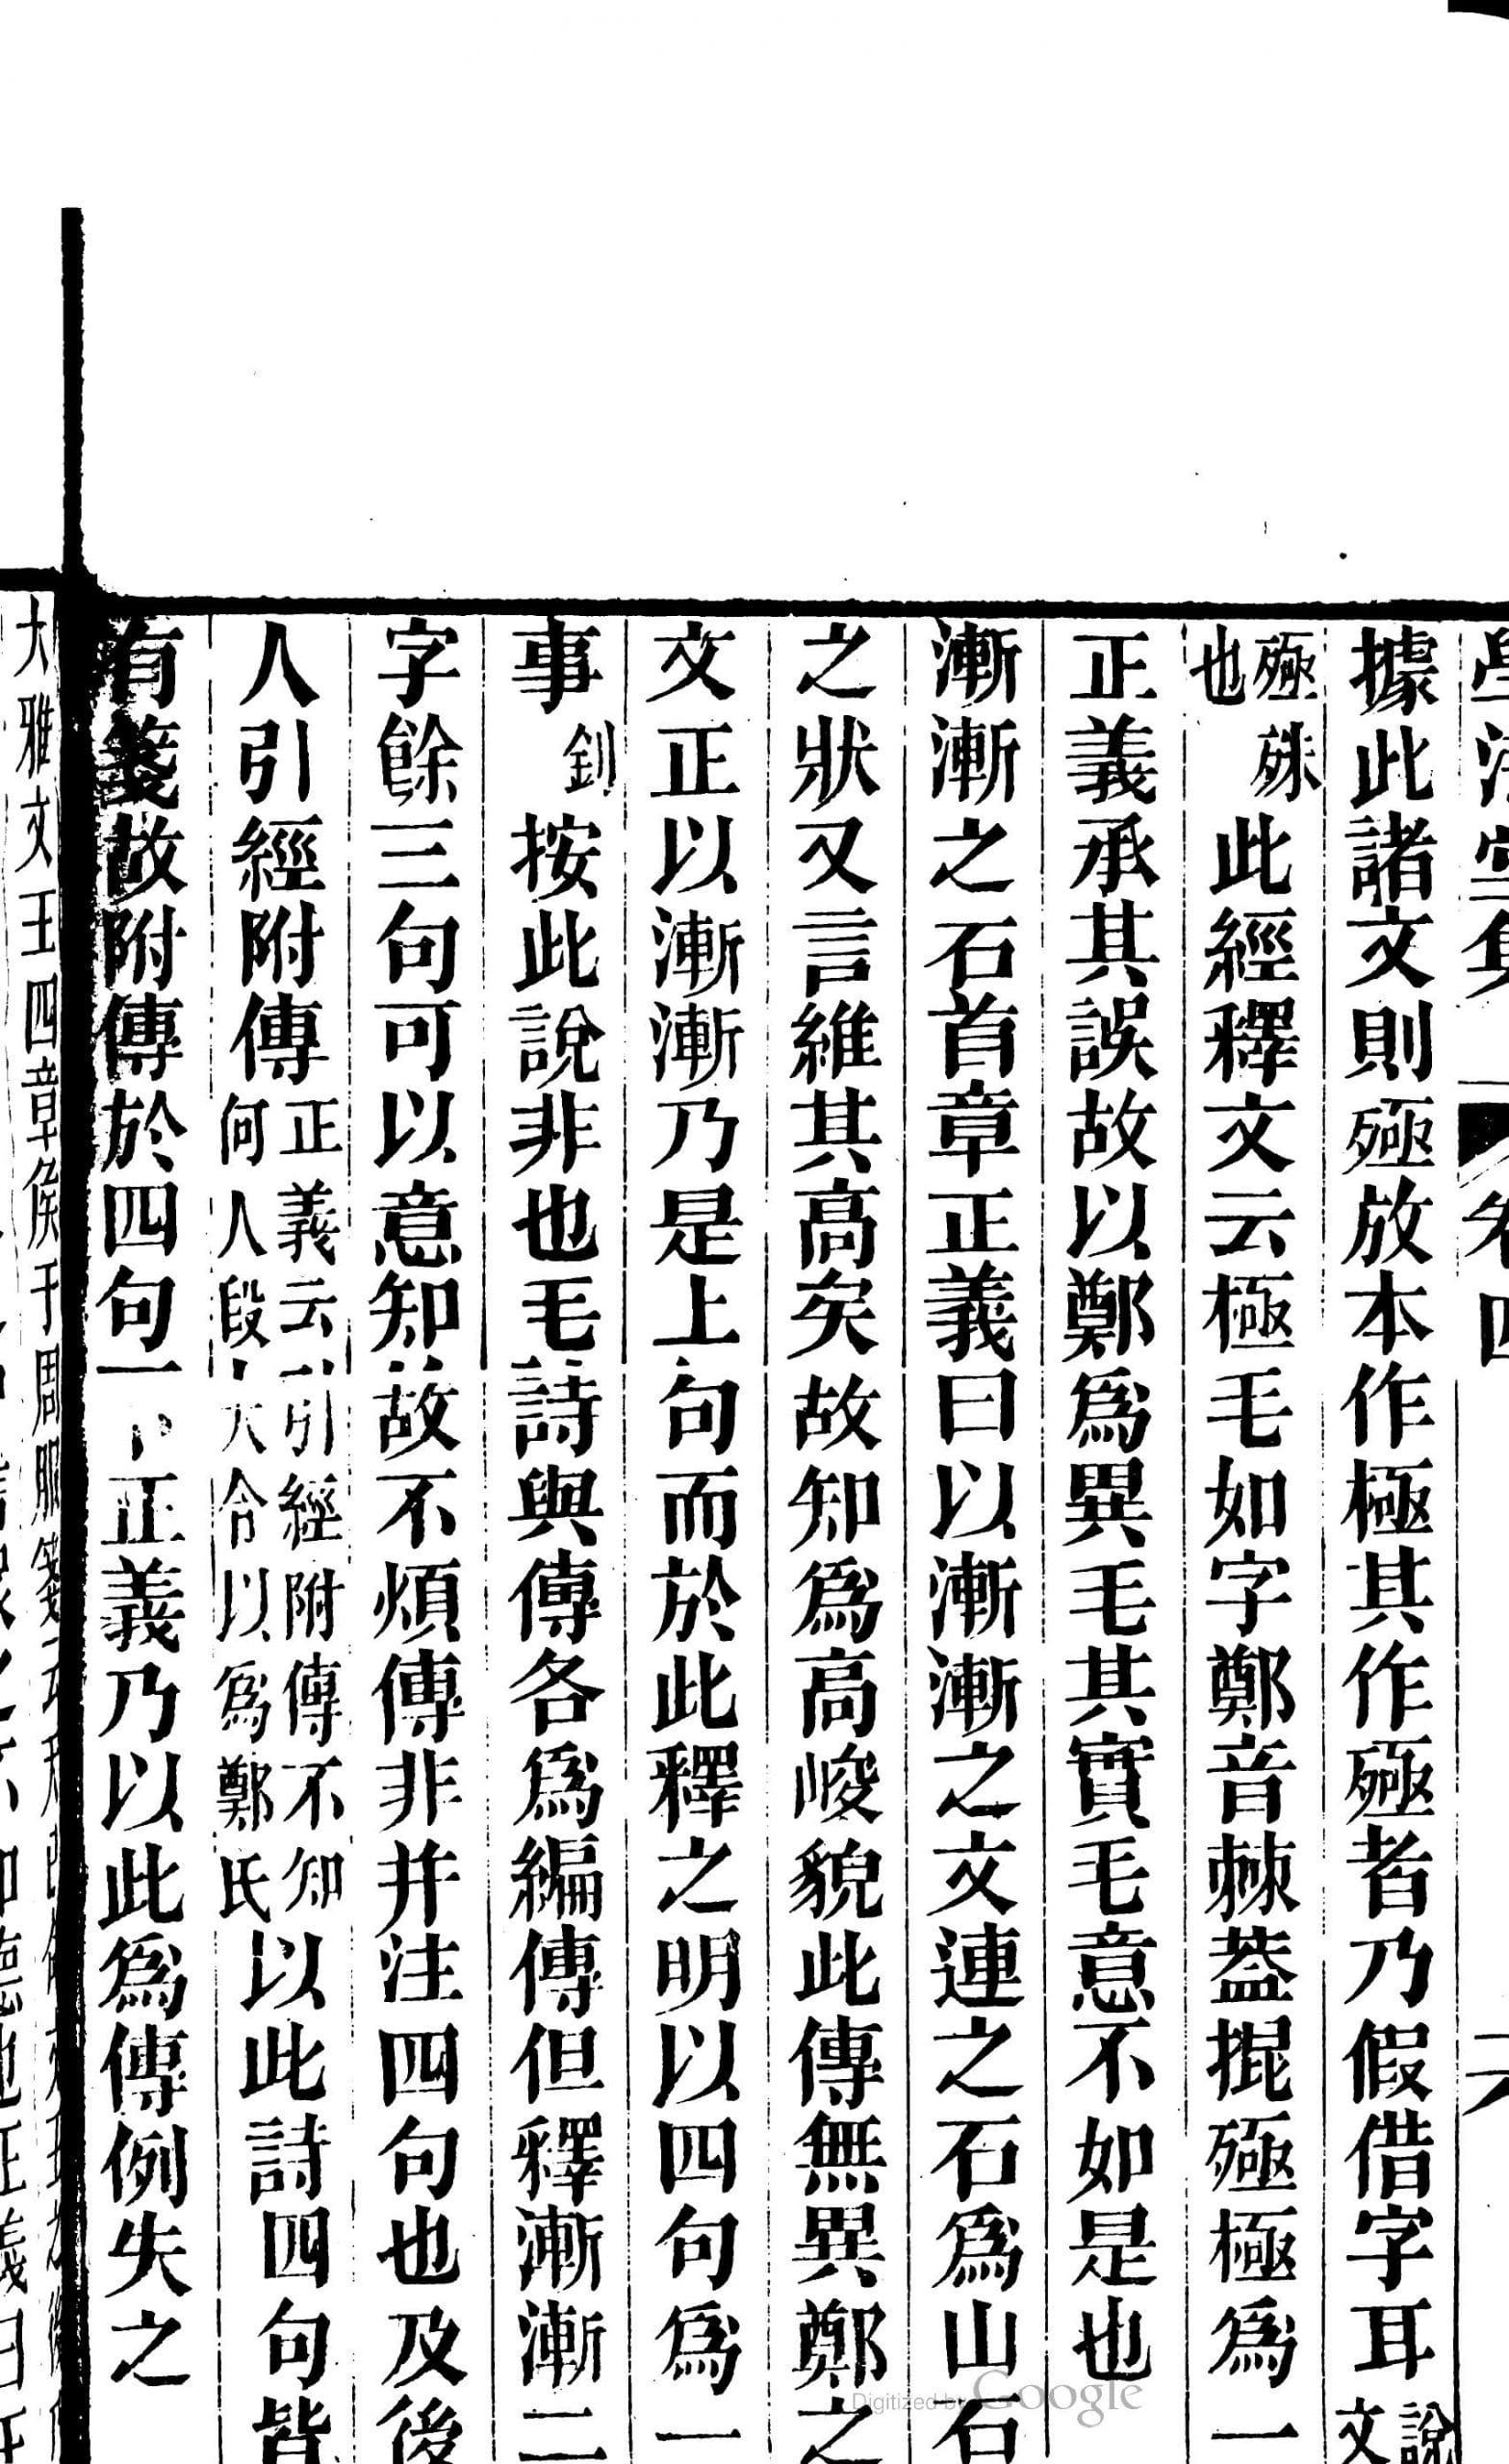 據此諸文則殛放本作極其作殛者乃假借字耳說文
殛殊也此經釋文云極毛如字鄭音棘葢掍殛極為一
正義承其誤故以鄭為異毛其實毛意不如是也
漸漸之石首章正義曰以漸漸之文連之石為山石
之狀又言維其高矣故知為高峻貌此傳無異鄭之
文正以漸漸乃是上句而於此釋之明以四句為一
事釗按此說非也毛詩與傳各為編傳但釋漸漸二
字餘三句可以意知故不煩傳非并注四句也及後
人引經附傳正義云引經附傳不知何人段大令以為鄭氏以此詩四句皆
有箋故附傳於四句下正義乃以此為傳例失之
大雅文王四章侯于周服箋
Digitized by Google